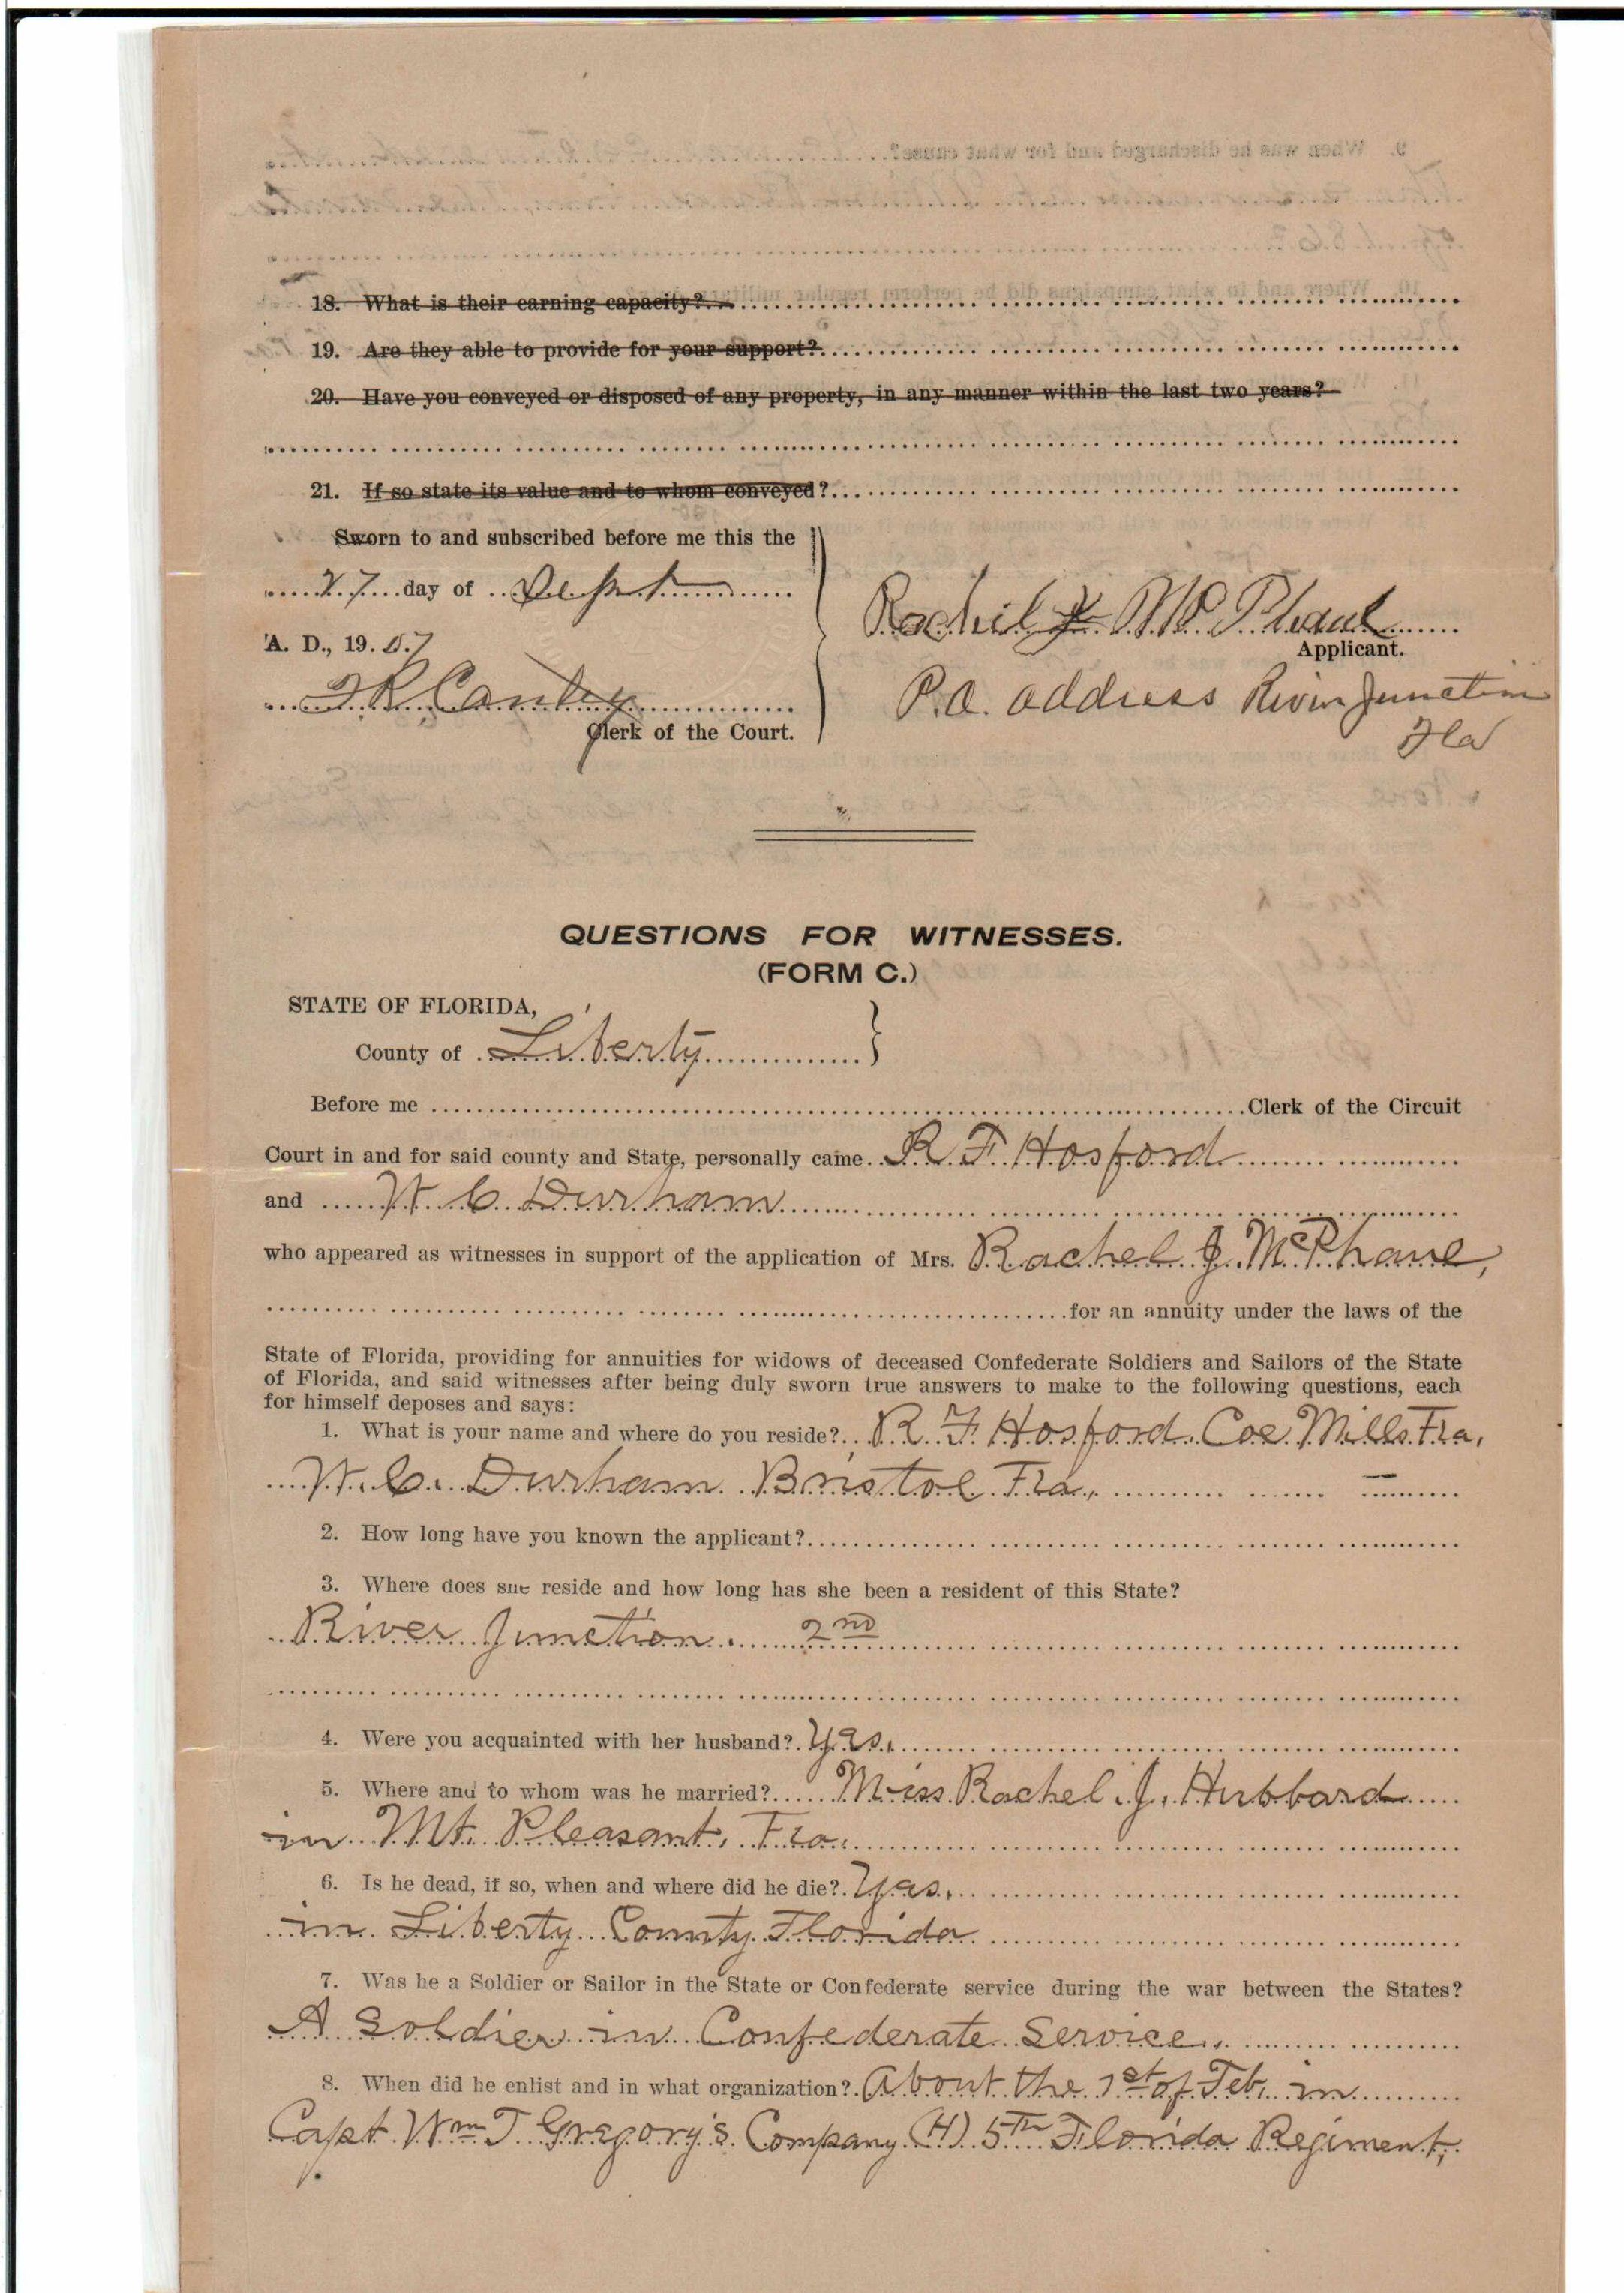 18. What is their earning capacity?
19. Are they able to provide for your support?
20. Have you conveyed or disposed of any property, in any manner within the last two years?
21. If so state its value and to whom conveyed?
Sworn to and subscribed before me this the
27 day of Sept
A. D., 19.07
Clerk of the Court.
Rachel J McPhaul
Applicant.
P.O. address River Junction
Fla
QUESTIONS FOR WITNESSES.
(FORM C.)
STATE OF FLORIDA,
County of Liberty
Before me Clerk of the Circuit
Court in and for said county and State, personally came R. F. Hosford
and W. C. Durham
who appeared as witnesses in support of the application of Mrs. Rachel J. McPhaul,
for an annuity under the laws of the
State of Florida, providing for annuities for widows of deceased Confederate Soldiers and Sailors of the State
of Florida, and said witnesses after being duly sworn true answers to make to the following questions, each
for himself deposes and says:
1. What is your name and where do you reside? R. F. Hosford. Coe Mills Fla,
W. C. Durham Bristol Fla,
2. How long have you known the applicant?
3. Where does she reside and how long has she been a resident of this State?
River Junction. 2nd
4. Were you acquainted with her husband? Yes.
5. Where and to whom was he married? Miss Rachel J. Hubbard
in Mt. Pleasant, Fla.
6. Is he dead, if so, when and where did he die? Yes.
in Liberty County Florida
7. Was he a Soldier or Sailor in the State or Confederate service during the war between the States?
A Soldier in Confederate Service.
8. When did he enlist and in what organization? About the 1st of Feb. in
Capt. Wm T Gregory's Company (H) 5th Florida Regiment,